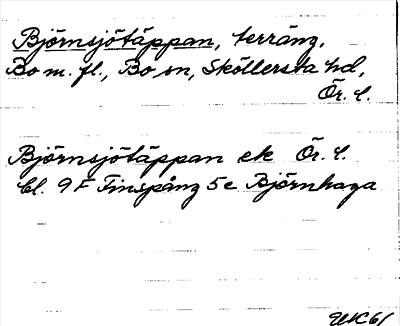 Björnsjötäppan, terräng,
Bo m. fl., Bo sn, Sköllersta hd,
Ör. l.
Björnsjötäppan ek Ör. l.
bl. 9F Finspång 5e Björnhaga
EUK61